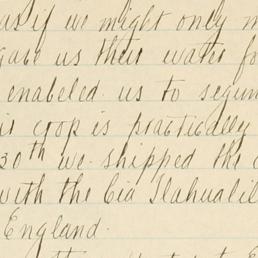 as if we might only m
gave us their water fo
enabeled us to segun
is crop is practically
30th we shipped the c
with the Cia Tlahualil
England.